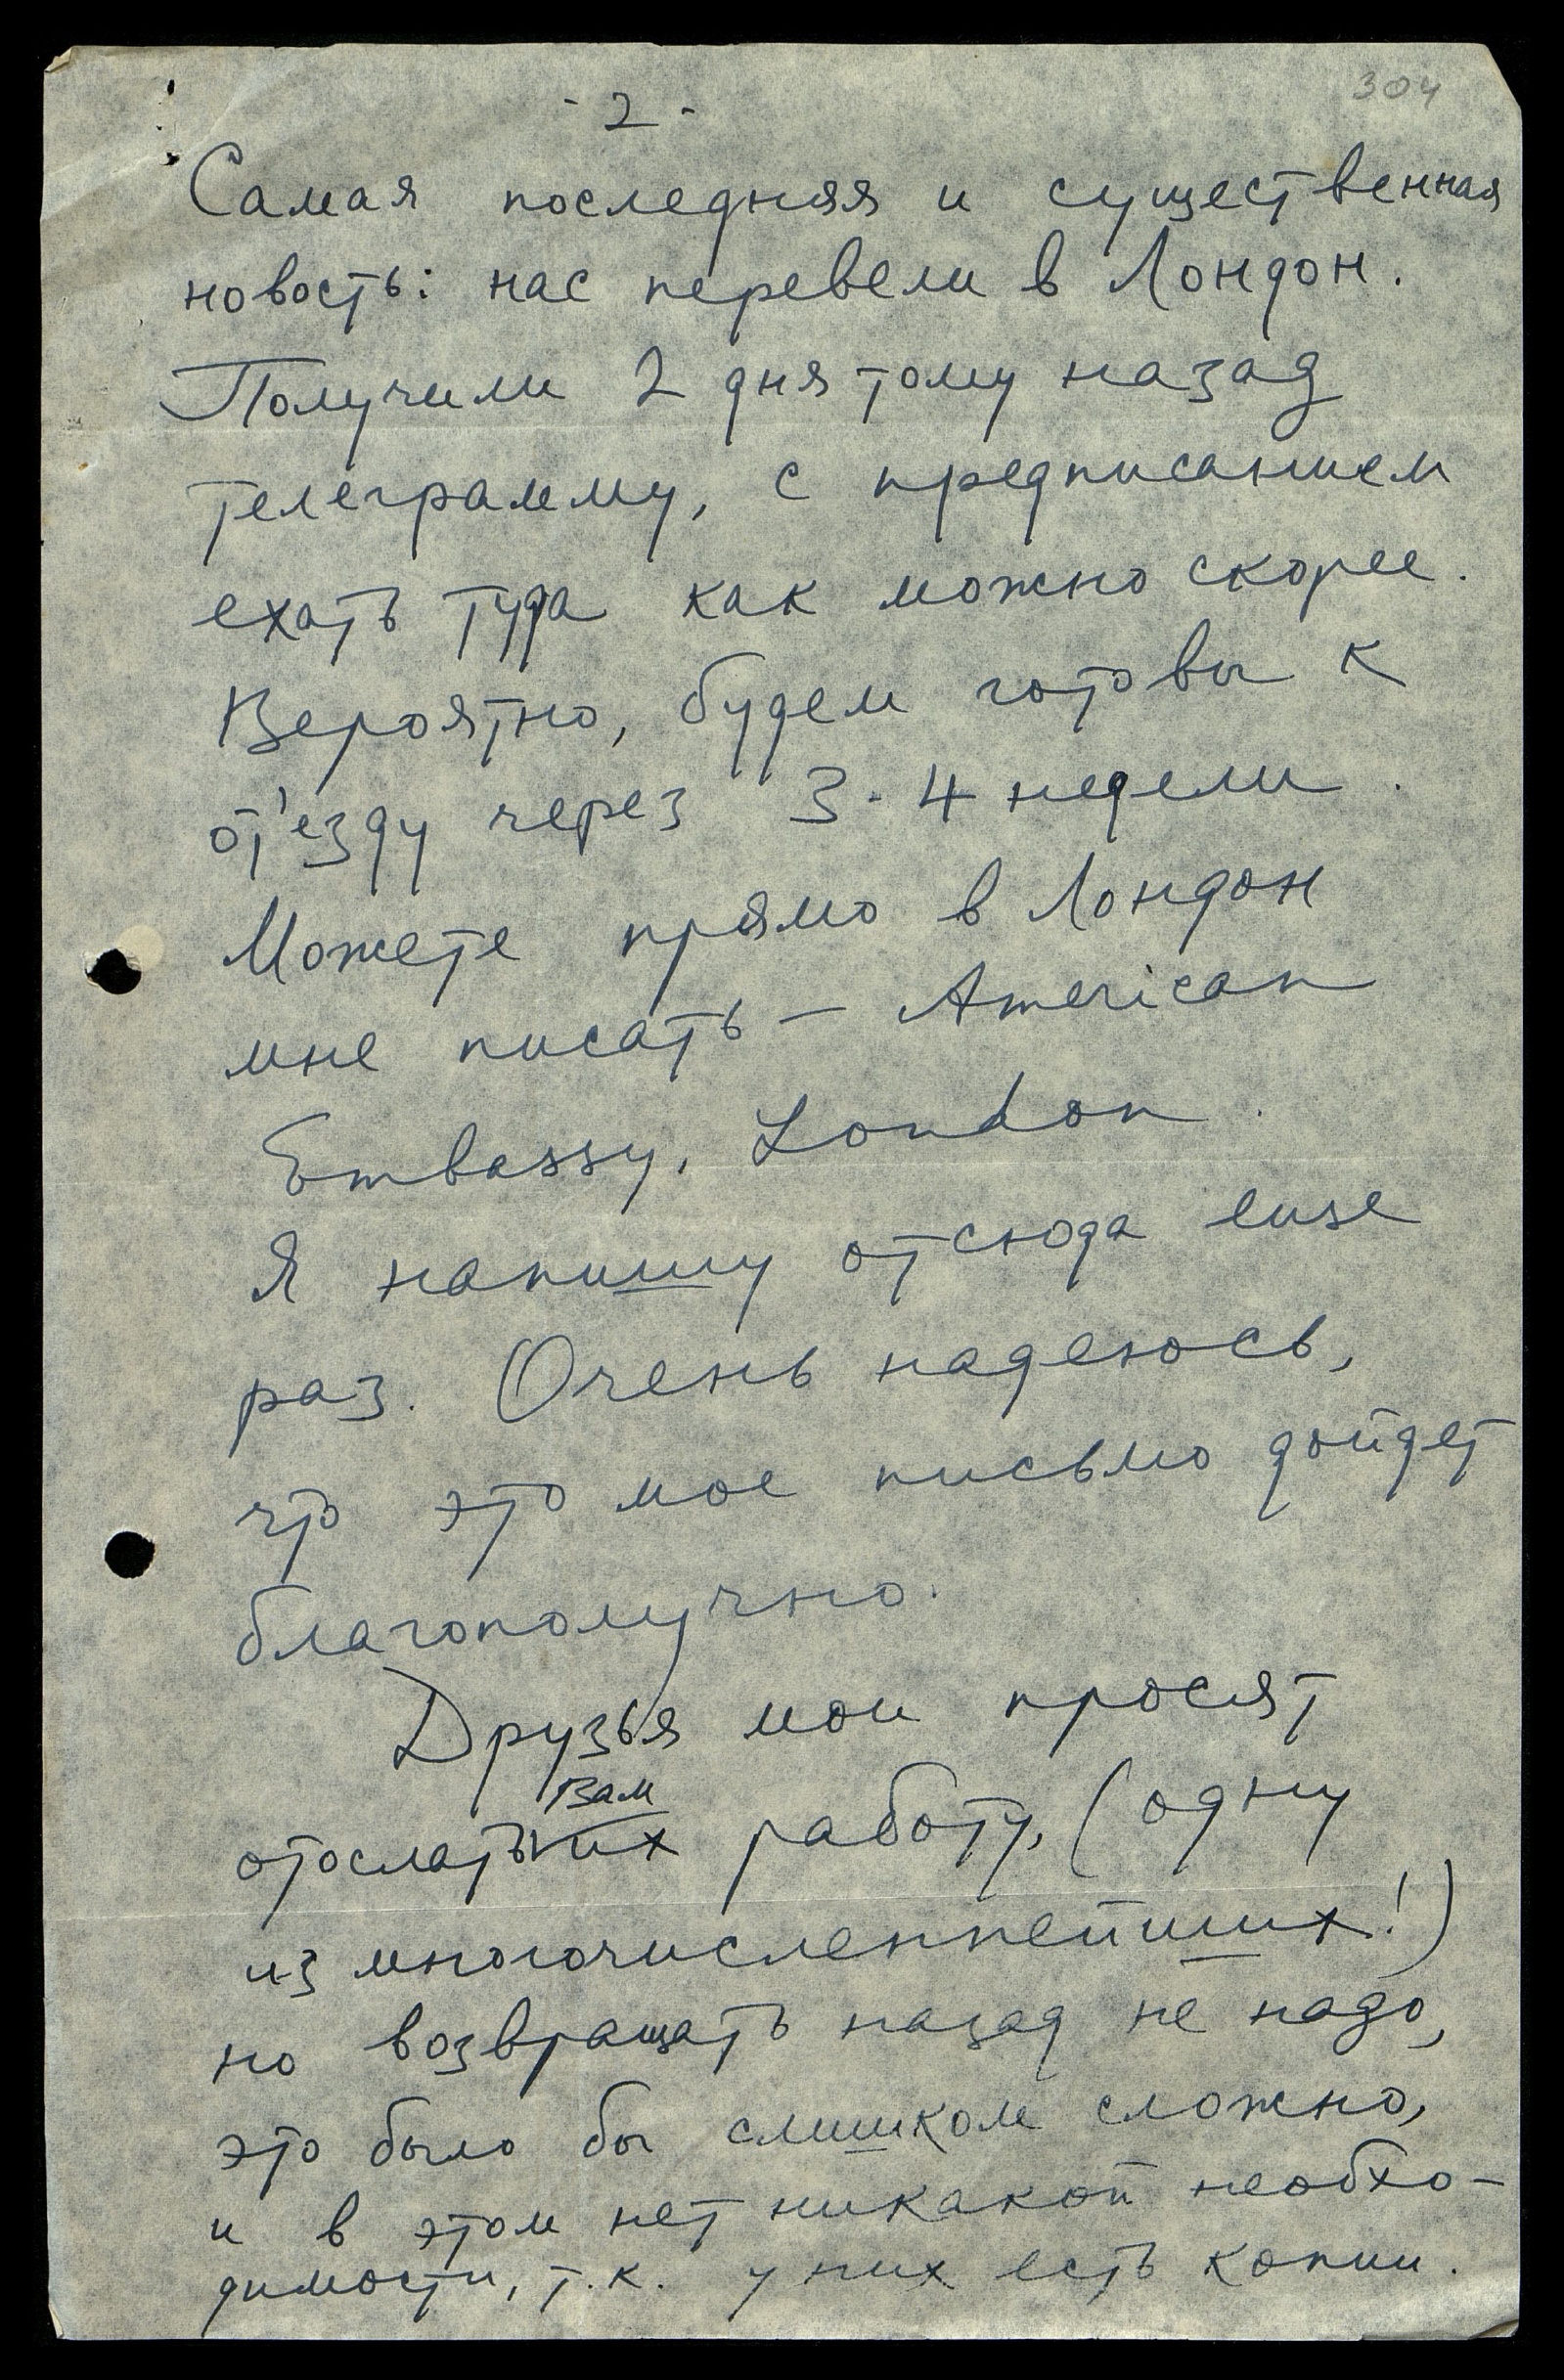 304
- 2 -
Самая последняя и существенная
новость: нас перевели в Лондон.
Получили 2 дня тому назад
телеграмму, с предписанием
ехать туда как можно скорее.
Вероятно, будем готовы к
от'езду через 3-4 недели.
Можете прямо в Лондон
мне писать – American
Embassy, London.
Я напишу отсюда еще
раз. Очень надеюсь,
что это мое письмо дойдет
благополучно.
Друзья мои просят
Вам
отослать их работу, (одну
из многочисленнейших!)
но возвращать назад не надо,
это было бы слишком сложно,
и в этом нет никакой необхо-
димости, т.к. у них есть копии.